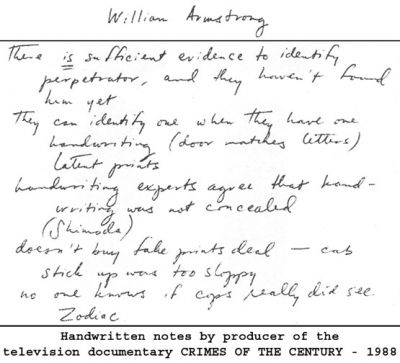 William Armstrong
There is sufficient evidence to identify
perpetrator, and they haven't found
him yet
They can identify one when they have one
handwriting (door matches letters)
latent prints
handwriting experts agree that hand-
writing was not concealed
(Shimoda)
doesn't buy fake prints deal — cab
stick up was too sloppy
no one knows if cops really did see
Zodiac
Handwritten notes by producer of the
television documentary CRIMES OF THE CENTURY - 1988